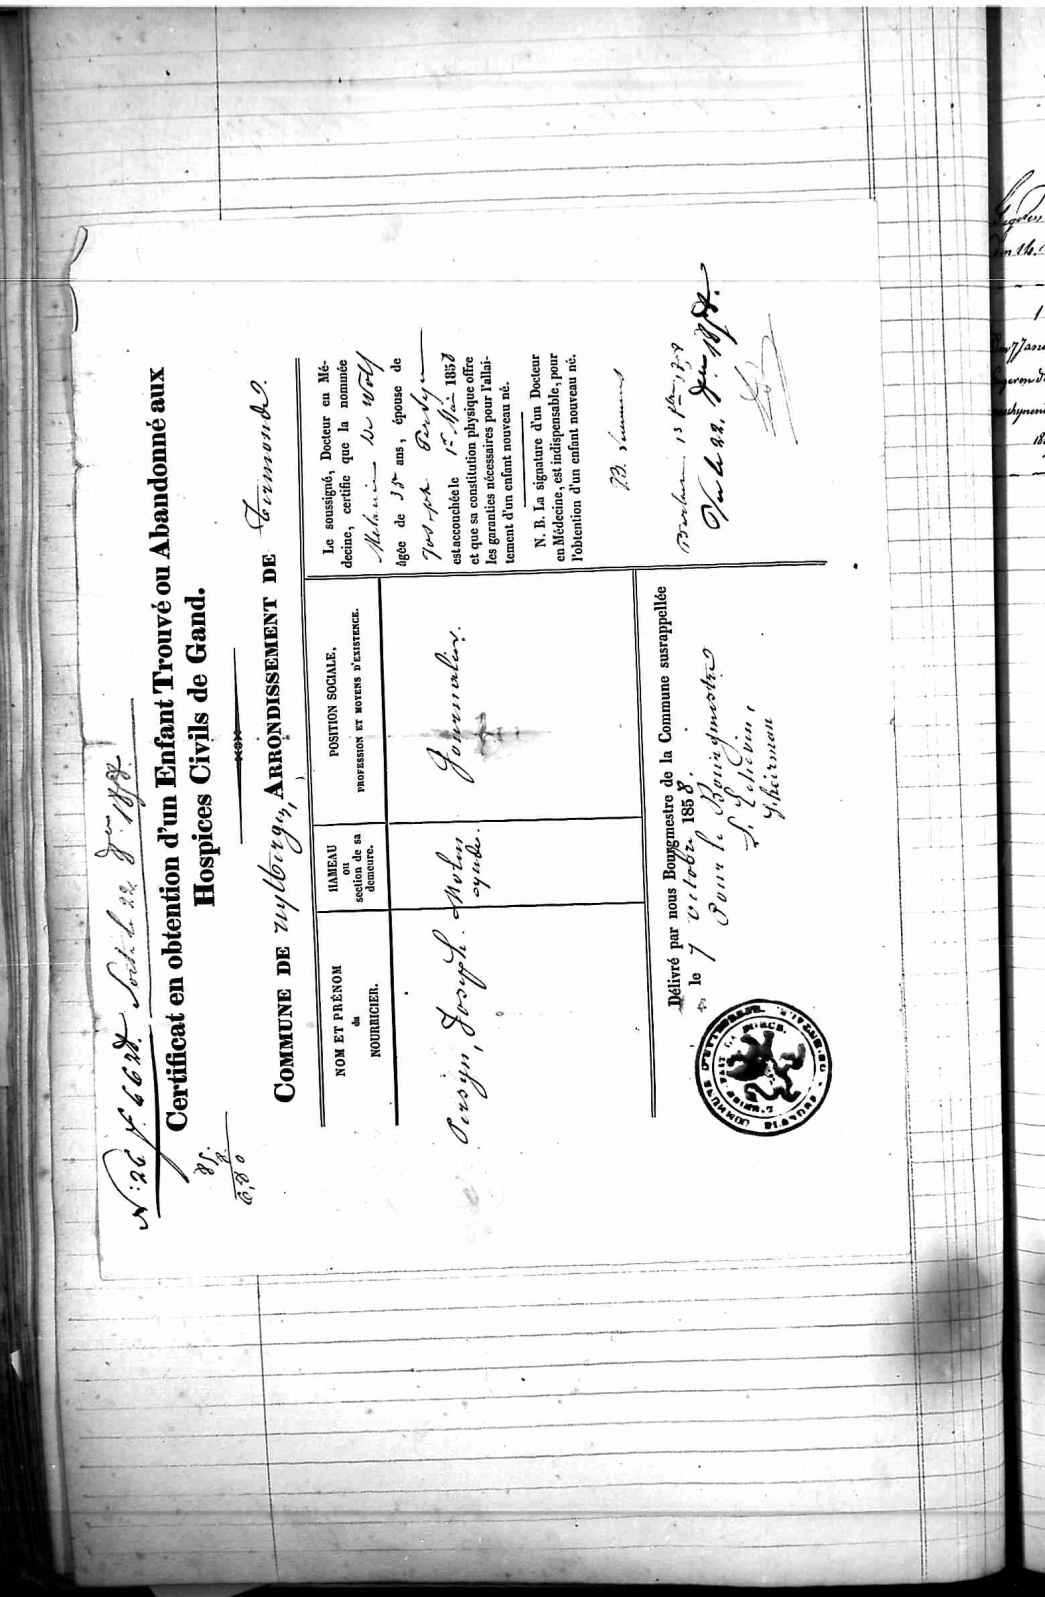 N: 26 f. 6628. Sorti le 22 Xbre 1858.
Certificat en obtention d'un Enfant Trouvé ou Abandonné aux
Hospices Civils de Gand.
85.
8
6,80
COMMUNE DE Uytbergen, ARRONDISSEMENT DE Termonde.
NOM ET PRÉNOM
du
NOURRICIER.
HAMEAU
ou
section de sa
demeure.
POSITION SOCIALE,
PROFESSION ET MOYENS D'EXISTENCE.
Persyn, Joseph.
Molen
Journalier.
Le soussigné, Docteur en Mé-
decine, certifie que la nommée
Melanie De Wolf
âgée de 35 ans, épouse de
Joseph Persyn
est accouchée le 1r Mai 1858
et que sa constitution physique offre
les garanties nécessaires pour l'allai-
tement d'un enfant nouveau né.
N. B. La signature d'un Docteur
en Médecine, est indispensable, pour
l'obtention d'un enfant nouveau né.
Délivré par nous Bourgmestre de la Commune susrappellée
le 7 Octobre 1858.
Pour le Bourgmestre
L'Echevin,
Vu le 22. Xbre 1858.
COMMUNE D'UYTBERGEN
L'UNION FAIT LA FORCE.